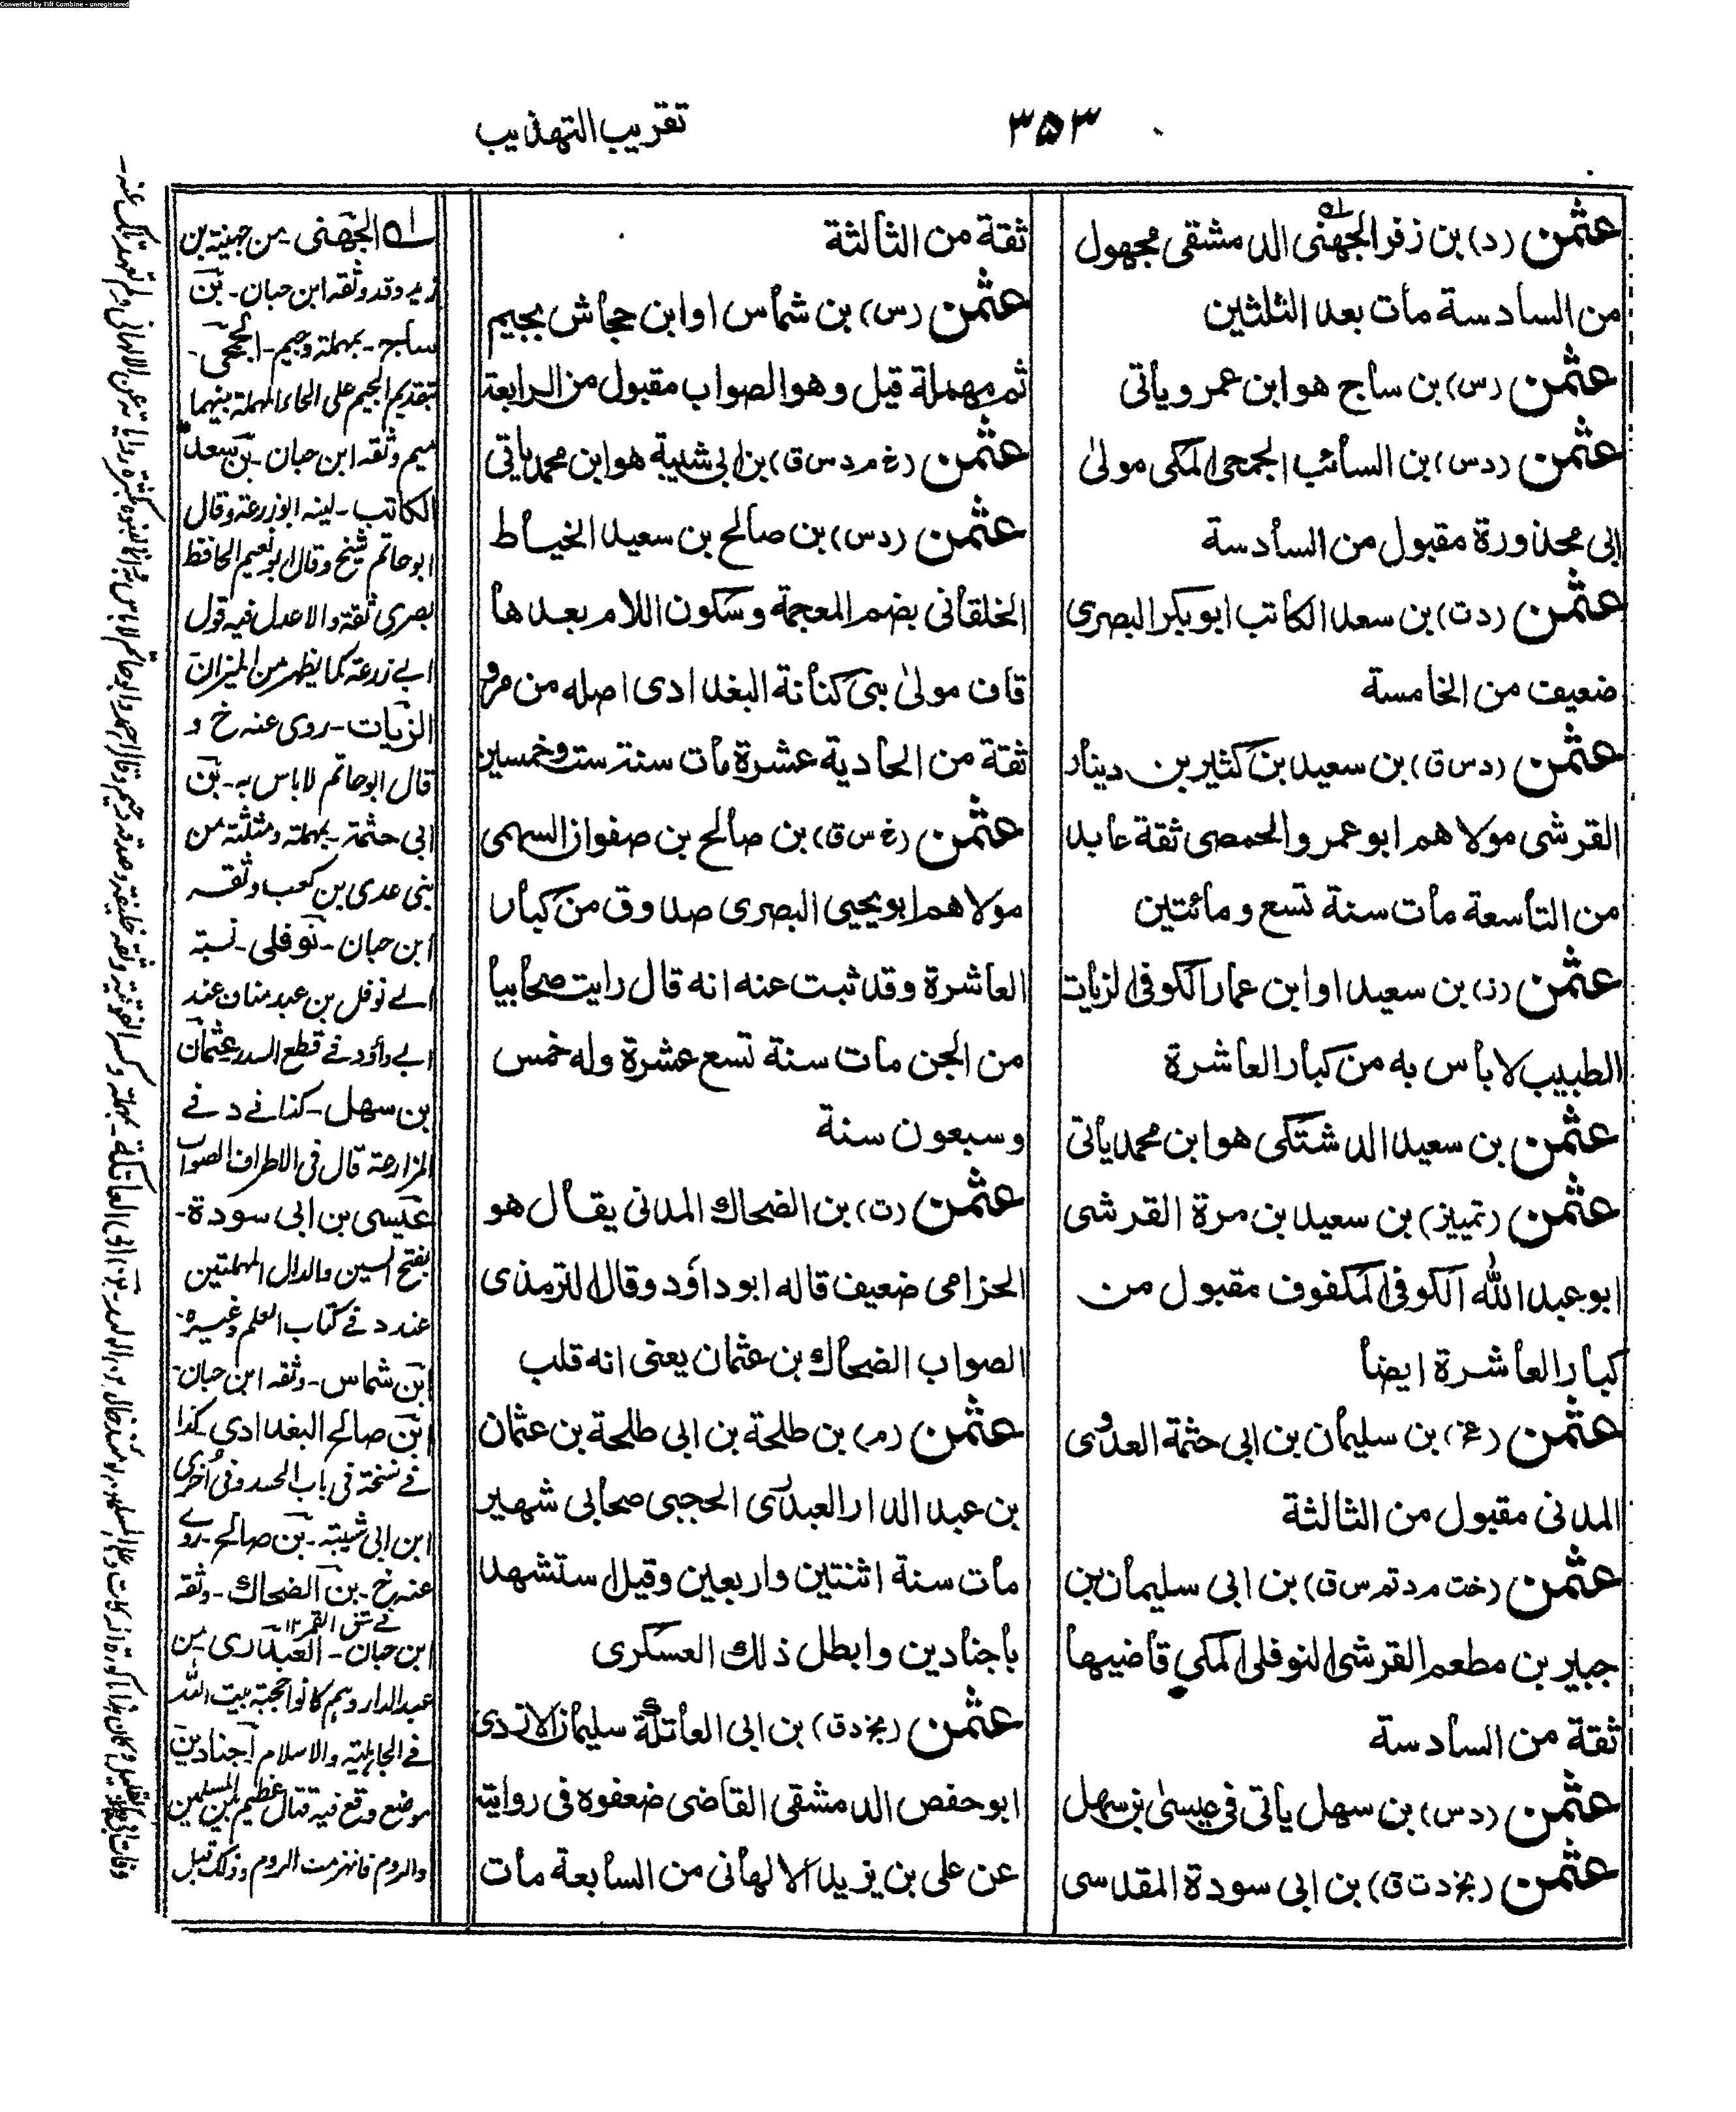 Converted by Tiff Combine - unregistered
۳۵۳
تقريب التهذيب
عثمن (د) بن زفر الجهنى الدمشقى مجهول
من السادسة مات بعد الثلثين
عثمن (س) بن ساج هو ابن عمرو ياتى
عثمن (دس) بن السائب الجمحى المكى مولىٰ
ابى محذورة مقبول من السادسة
عثمن (دت) بن سعد الكاتب ابوبكر البصرى
ضعيف من الخامسة
عثمن (دس ق) بن سعيد بن كثير بن دينار
القرشى مولاهم ابو عمرو الحمصى ثقة عابد
من التاسعة مات سنة تسع ومائتين
عثمن (ز) بن سعيد او ابن عمار الكوفى الزيات
الطبيب لا باس به من كبار العاشرة
عثمن بن سعيد الدشتكى هو ابن محمد ياتى
عثمن (تمييز) بن سعيد بن مرة القرشى
ابو عبد الله الكوفى المكفوف مقبول من
كبار العاشرة ايضا
عثمن (عز) بن سليمان بن ابى حثمة العدوى
المدنى مقبول من الثالثة
عثمن (خت م د تم س ق) بن ابى سليمان بن
جبير بن مطعم القرشى النوفلى المكى قاضيها
ثقة من السادسة
عثمن (دس) بن سهل ياتى فى عيسىٰ بن سهل
عثمن (بخ د ت ق) بن ابى سودة المقدسى
ثقة من الثالثة
عثمن (س) بن شماس او ابن جحاش بجيم
ثم مهملة قيل وهو الصواب مقبول من الرابعة
عثمن (خ م د س ق) بن ابى شيبة هو ابن محمد ياتى
عثمن (دس) بن صالح بن سعيد الخياط
الخلقانى بضم المعجمة وسكون اللام بعدها
قاف مولىٰ بنى كنانة البغدادى اصله من مرو
ثقة من الحادية عشرة مات سنة ست وخمسين
عثمن (خ س ق) بن صالح بن صفوان السهمى
مولاهم ابو يحيى البصرى صدوق من كبار
العاشرة وقد ثبت عنه انه قال رايت صحابيا
من الجن مات سنة تسع عشرة وله خمس
وسبعون سنة
عثمن (ت) بن الضحاك المدنى يقال هو
الحزامى ضعيف قاله ابو داؤد وقال الترمذى
الصواب الضحاك بن عثمان يعنى انه قلب
عثمن (م) بن طلحة بن ابى طلحة بن عثمان
بن عبد الدار العبدرى الحجبى صحابى شهير
مات سنة اثنتين واربعين وقيل استشهد
باجنادين وابطل ذلك العسكرى
عثمن (بخ د ق) بن ابى العاتكة سليمان الازدى
ابو حفص الدمشقى القاضى ضعفوه فى رواية
عن على بن يزيد الالهانى من السابعة مات
له الجهنى - من جهينة بن
زيد وقد وثقه ابن حبان - بن
ساج - بمهملة وجيم - الجمحى -
بتقديم الجيم على الحاء المهملة بينهما
ميم وثقه ابن حبان - بن سعد
الكاتب - لينه ابو زرعة وقال
ابو حاتم شيخ وقال ابو نعيم الحافظ
بصرى ثقة والاعدل فيه قول
ابے زرعة كما يظهر من الميزان
الزيات - روى عنه خ و
قال ابو حاتم لا باس به - بن
ابى حثمة - بمهملة ومثلثة من
بنى عدى بن كعب وثقه
ابن حبان - نوفلى - نسبة
الے نوفل بن عبد مناف عند
ابے داؤد فے قطع السدر عثمان
بن سهل - كذا فے د فے
المزارعة قال فى الاطراف الصواب
عيسى بن ابى سودة -
بفتح السين والدال المهملتين
عند د فے كتاب العلم وغيره -
ابن شماس - وثقه ابن حبان -
بن صالح البغدادى كذا
فے نسخة فى باب الحسد وفى اخرى
ابن ابى شيبة - بن صالح - روے
عنه خ - بن الضحاك - وثقه
ابن حبان - العبدرى - من
عبد الدار وهم كانوا حجبة بيت الله
فے الجاهلية والاسلام اجنادين
موضع وقع فيه قتال عظيم بين المسلمين
والروم فانهزمت الروم وذلك قبل